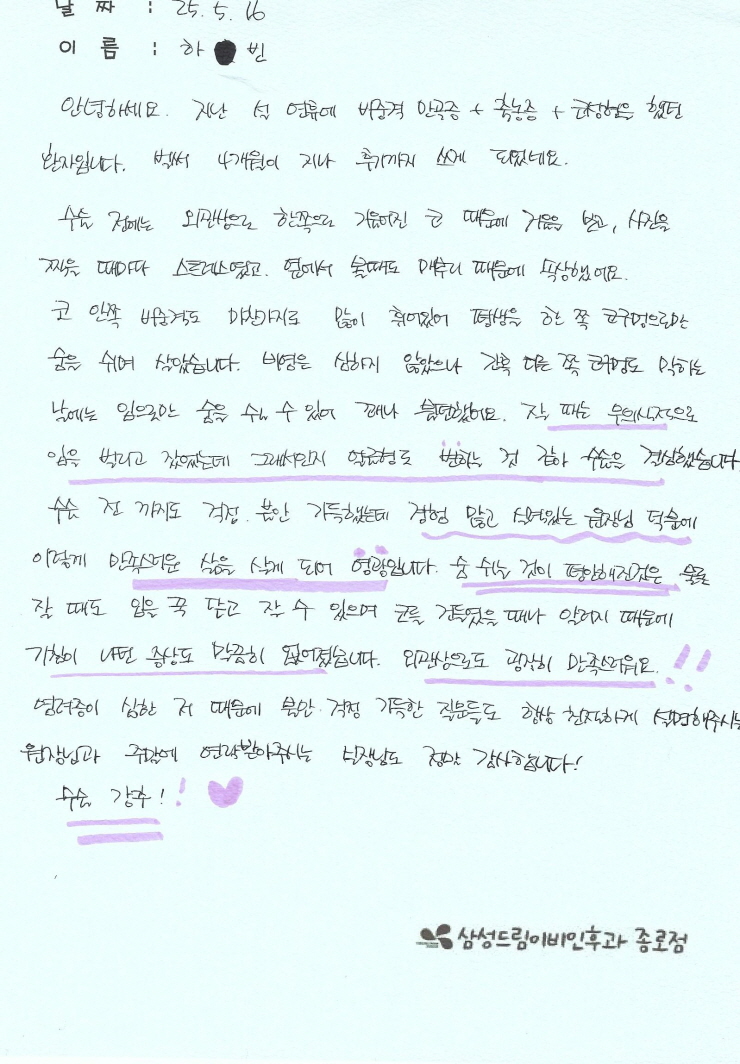 날 짜 : 25.5.16
이 름 : 하 빈
안녕하세요. 지난 설 연휴에 비중격 만곡증 + 축농증 + 코성형을 했던
환자입니다. 벌써 4개월이 지나 후기까지 쓰게 되었네요.
수술 전에는 외관상으로 한쪽으로 기울어진 코 때문에 거울을 보고, 사진을
찍을 때마다 스트레스였고. 옆에서 볼때도 매부리 때문에 속상했어요.
코 안쪽 비중격도 마찬가지로 많이 휘어있어 평생을 한 쪽 콧구멍으로만
숨을 쉬며 살았습니다. 비염은 심하지 않았으나 간혹 다른 쪽 콧구멍도 막히는
날에는 입으로만 숨을 쉴 수 있어 꽤나 불편했어요. 잘 때는 무의식적으로
입을 벌리고 잤었는데 그래서인지 얼굴형도 변하는 것 같아 수술을 결심했습니다
수술 전 까지도 걱정. 불안 가득했는데 경험 많고 실력있는 원장님 덕분에
이렇게 만족스러운 삶을 살게 되어 영광입니다. 숨 쉬는 것이 편안해진것은 물론
잘 때도 입을 꾹 닫고 잘 수 있으며 코를 골았을 때나 알러지 때문에
기침이 나던 증상도 말끔히 없어졌습니다. 외관상으로도 굉장히 만족스러워요. !!
염려증이 심한 저 때문에 불안 걱정 가득한 질문들도 항상 친절하게 설명해주시는
원장님과 주말에 연락받아주시는 실장님도 정말 감사합니다!
수술 강추! !
삼성드림이비인후과 종로점